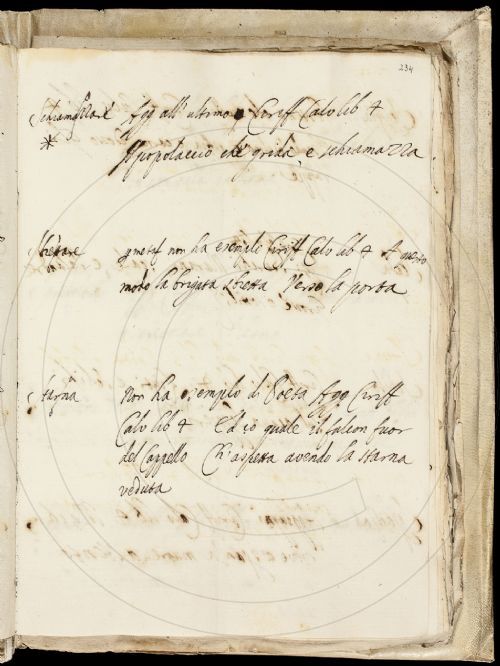 234
Schiamazzare Agg all' ultimo Ciriff Calv lib 4
* Il popolaccio che grida, e schiamazza.
Sbiettare questa non ha esemple Ciriff Calv lib 4 A questo
modo la brigata sbietta Verso la porta
Starna Non ha esemplo di Poeta Agg Ciriff
Calv lib 4 Ed io quale il falcon fuor
del Cappello Ch' aspetta avendo la starna
veduta